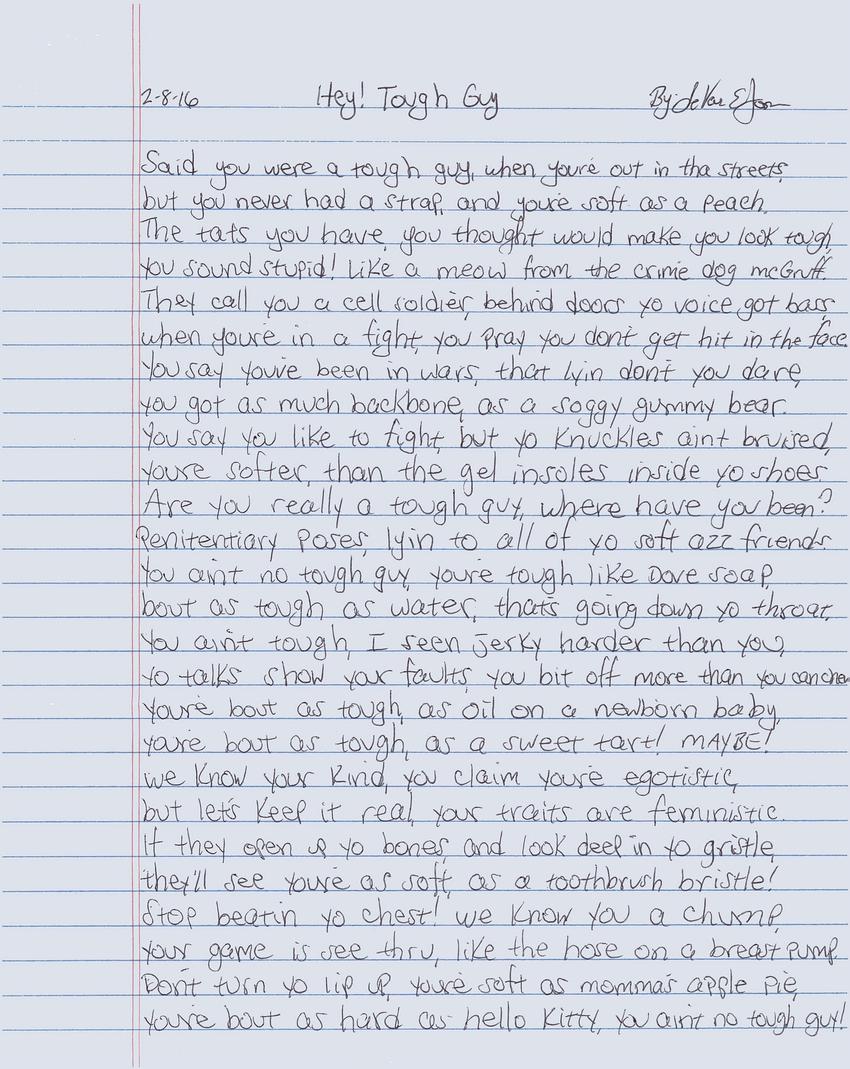 2-8-16 Hey! Tough Guy By:
Said you were a tough guy, when you're out in tha streets,
but you never had a strap, and you're soft as a peach.
The tats you have, you thought would make you look tough,
you sound stupid! Like a meow from the crime dog mcGruff.
They call you a cell soldier, behind doors yo voice got bass,
when you're in a fight, you pray you don't get hit in the face.
You say you've been in wars, that lyin don't you dare,
you got as much backbone, as a soggy gummy bear.
You say you like to fight, but yo knuckles ain't bruised,
you're softer, than the gel insoles inside yo shoes.
Are you really a tough guy, where have you been?
Penitentiary Poses, lyin to all of yo soft azz friends.
You ain't no tough guy, you're tough like Dove soap,
bout as tough as water, that's going down yo throat.
You ain't tough, I seen jerky harder than you,
yo talks show your faults, you bit off more than you can chew
You're bout as tough, as oil on a newborn baby,
you're bout as tough, as a sweet tart! MAYBE!
we know your kind, you claim you're egotistic,
but let's keep it real, your traits are feministic.
If they open up yo bones, and look deep in yo gristle,
they'll see you're as soft, as a toothbrush bristle!
Stop beatin yo chest! we know you a chump,
your game is see thru, like the hose on a breast pump.
Don't turn yo lip up, you're soft as momma's apple pie,
you're bout as hard as hello Kitty, you ain't no tough guy!